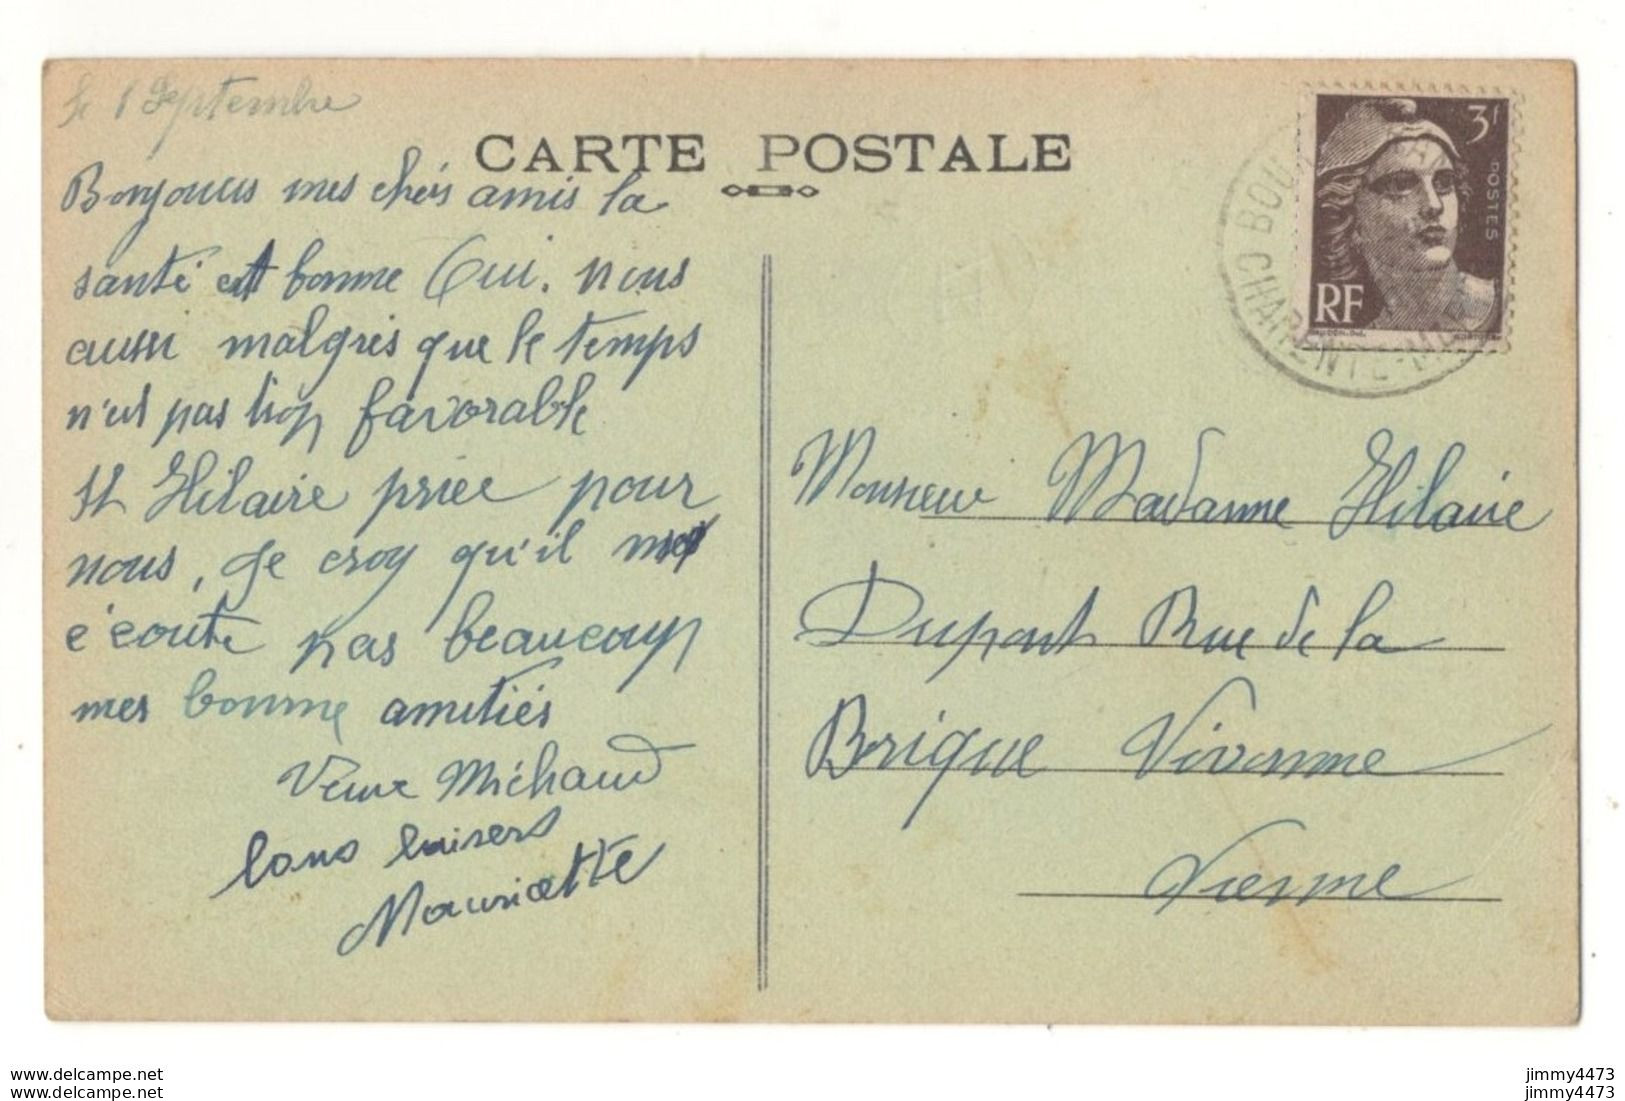 le 1 Septembre
CARTE POSTALE
Bonjours mes chers amis la
santé est bonne Oui. nous
aussi malgrés que le temps
n'est pas trop favorable
St Hilaire priée pour
nous, Je croy qu'il me
c'écoute pas beaucoup
mes bonne amitiés
Veuve Michaud
bons baisers
Mauricette
3F
POSTES
RF
CHARENTE-M
Monsieur Madamme Hilaire
Dupont Rue de la
Brique Vivonne
Vienne
www.delcampe.net
www.delcampe.net
jimmy4473
jimmy4473